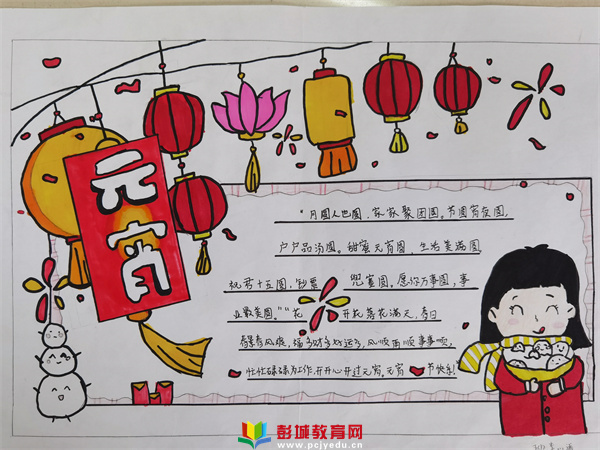 元宵
"月圆人也圆,家家聚团圆。节圆宵夜圆,
户户品汤圆。甜蜜元宵圆,生活美满圆
祝君十五圆,钞票 圆。愿你万事圆,事
业最美圆。""花 开花落花满天,春日
春景春风 ,福多财多好运多,风顺雨顺事事顺,
忙忙碌碌为工作,开开心心过元宵。元宵 节快乐!
彭城教育网
www.pcjyedu.cn